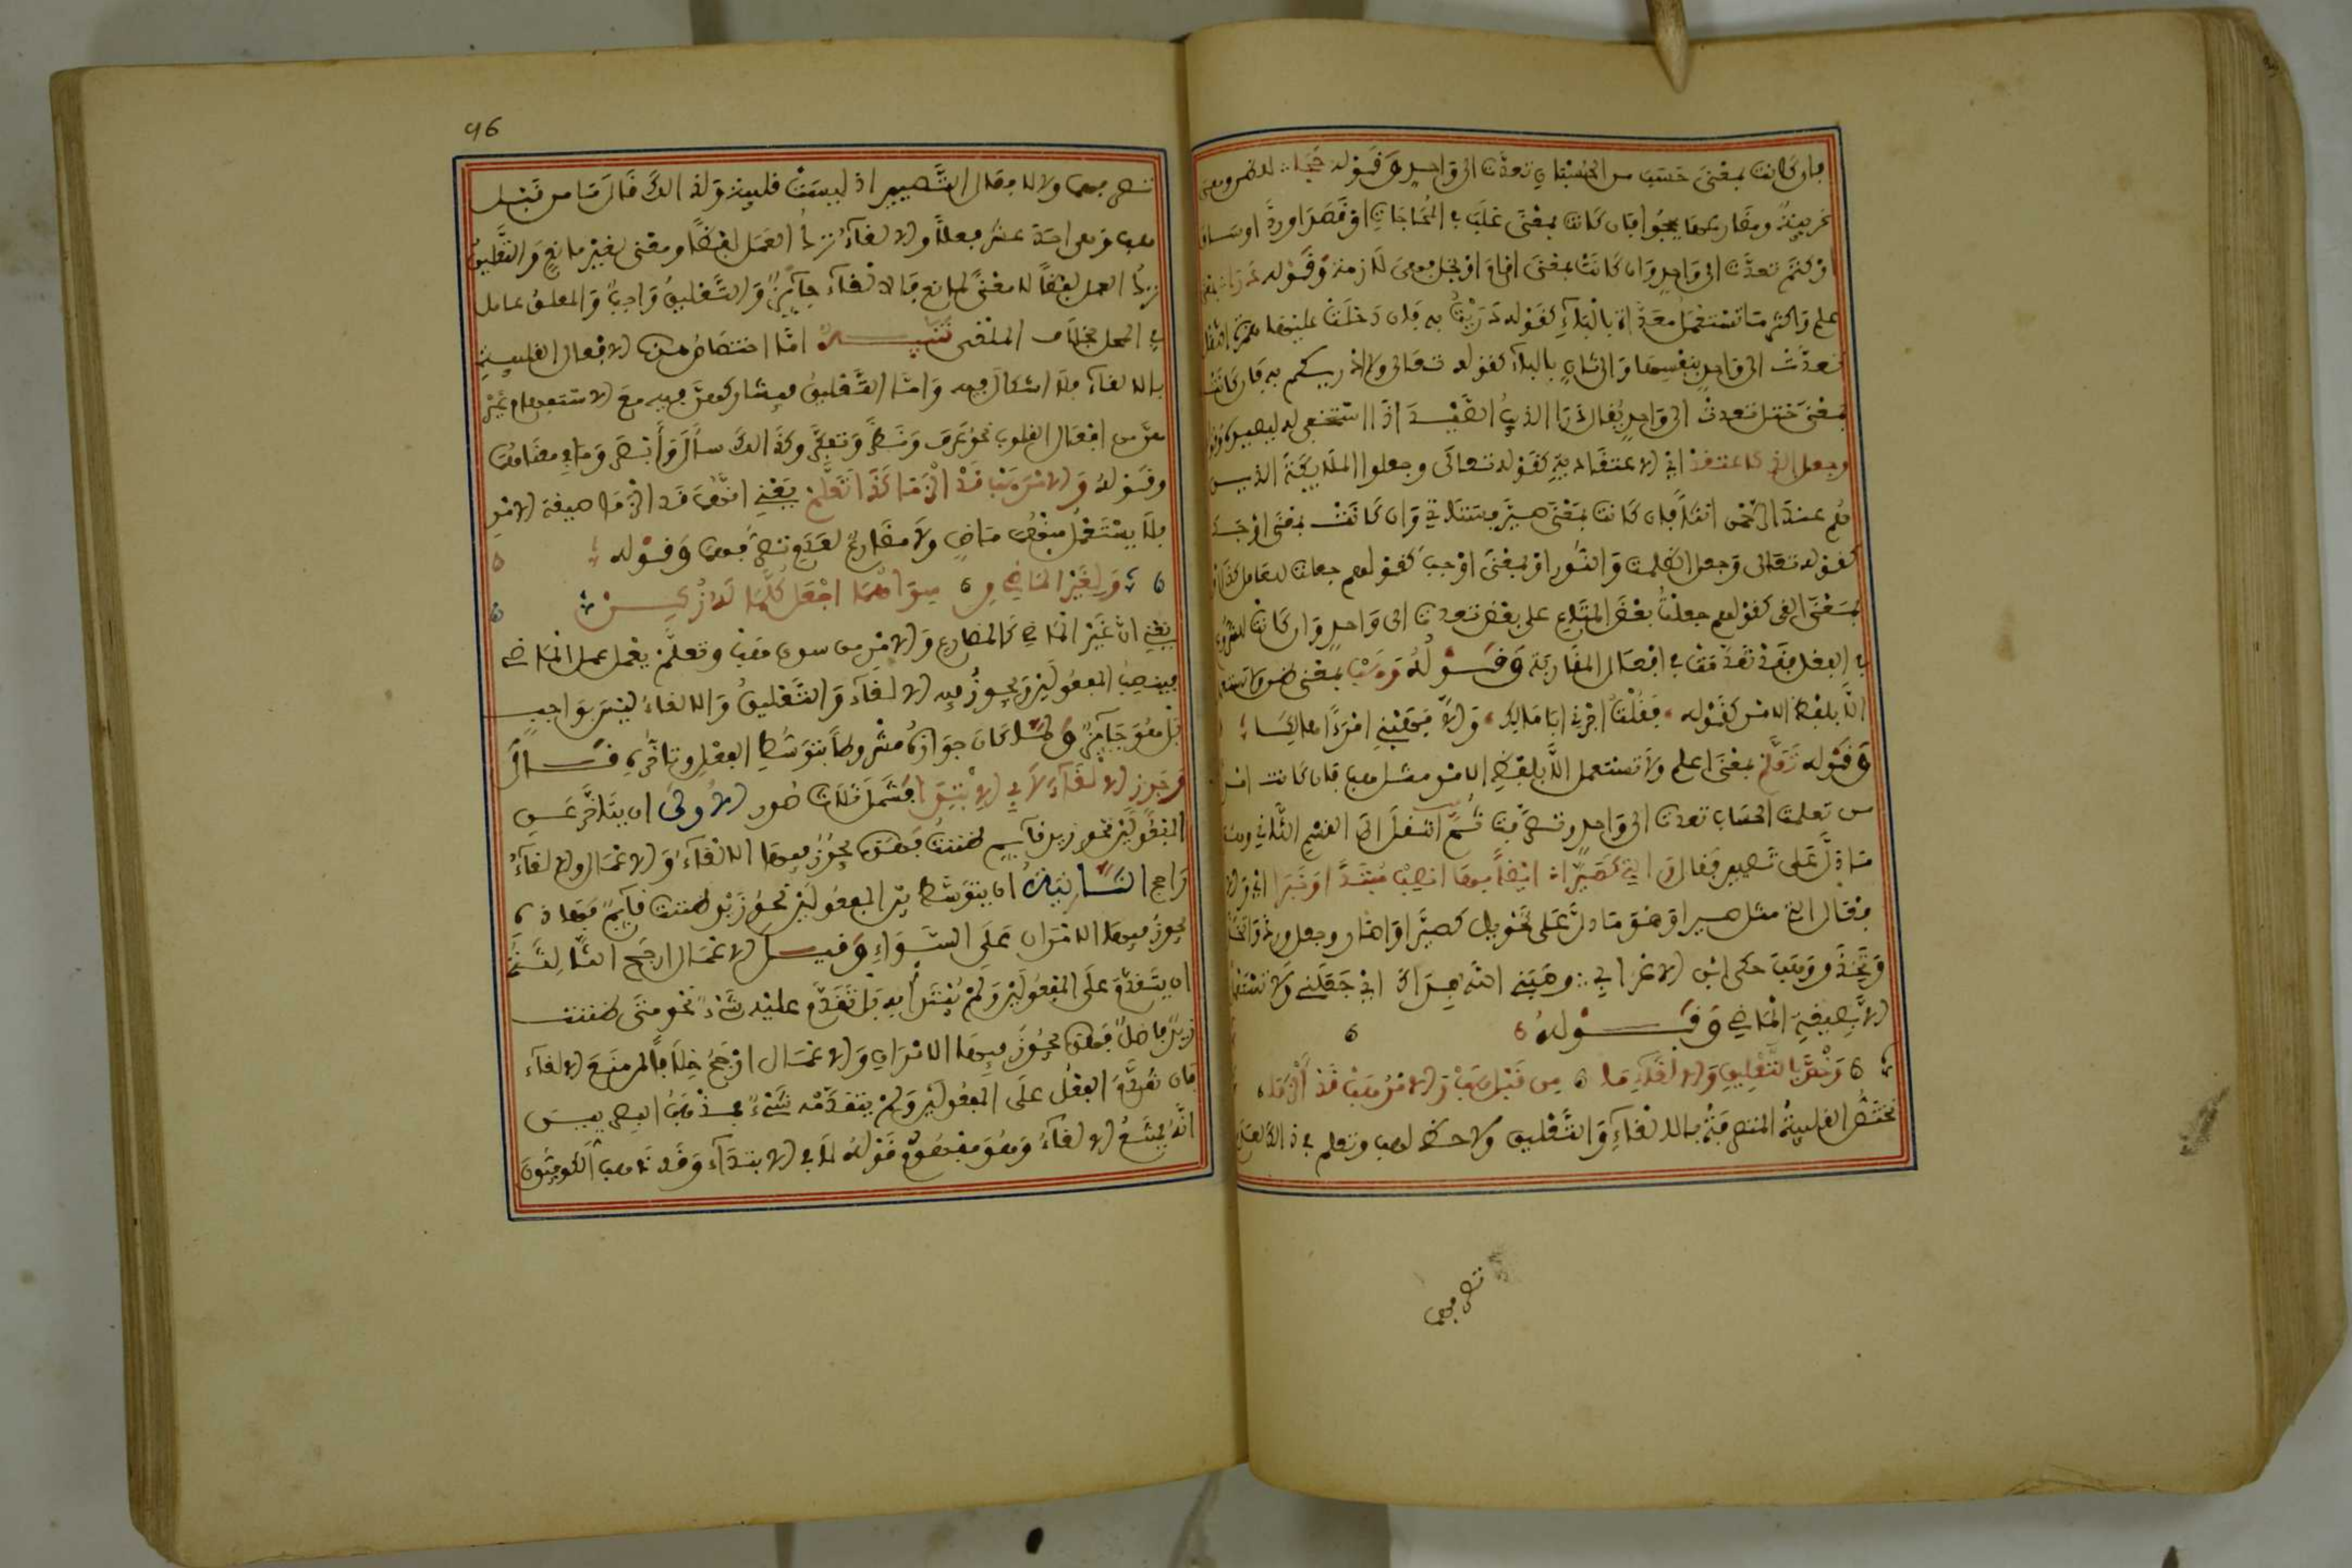 فإن كانت بمعنى حسب من الحسبان تعدت الى واحد وقوله حجا
غريبة ومضارعها يحجوا فإن كانت بمعنى غلب في المحاجات او قصد او رد او ساق
او كتم تعدت الى واحد وان كانت بمعنى اقام او بخل فهي لازمة وقوله درى بمعنى
علم واكثر ما تستعمل معداة بالباء كقوله دريت به فإن دخلت عليها همزة النقل
تعدت الى واحد بنفسها والى ثان بالباء كقوله تعالى ولا ادريكم به فإن كانت
بمعنى ختل تعدت الى واحد يقال درا الذيب الصيد اذا استخفى له ليصيده وقوله
وجعل الذ كاعتقد اي الاعتقادية كقوله تعالى وجعلوا الملايكة الذين
هم عند الرحمن اناثا فإن كانت بمعنى صير فستاتي وان كانت بمعنى اوجد
كقوله تعالى وجعل الظلمت والنور او بمعنى اوجب كقولهم جعلت للعامل كذا او
بمعنى القى كقولهم جعلت بعض المتاع على بعض تعدت الى واحد وان كانت للشروع
في الفعل فقد تقدمت في افعال المقاربة وقوله وهب بمعنى ظن ولا تستعمل
الا بلفظ الامر كقوله فقلت اجرني ابا مالك والا فهبني امرءا هالكا
وقوله تعلم بمعنى اعلم ولا تستعمل الا بلفظ الامر مثل هب فإن كانت امرا
من تعلمت الحساب تعدت الى واحد وتصرفت ثم انتقل الى القسم الثاني وهو
ما دل على تصيير فقال والتي كصيرا ايضا بها انصب مبتدا وخبرا اي والا
فعال التي مثل صير وهو ما دل على تحويل كصير واصار وجعل ورد واتخذ
وتخذ ووهب حكى ابن الاعرابي وهبني الله فداك اي جعلني ولا تستعمل
الا بصيغة الماضي وقوله
وخص بالتعليق والالغاء ما من قبل هب والامر هب قد الزما
تختص القلبية المتصرفة بالالغاء والتعليق ولا حظ لهب وتعلم في ذالك لعدم
تصرفهما
96
تصرفهما ولا لافعال التصيير اذ ليست قلبية ولذالك قال ما من قبل
هب وهي احد عشر فعلا والالغاء ترك العمل لفظا ومعنى لغير مانع والتعليق
ترك العمل لفظا لا معنى لمانع فالالغاء جائز والتعليق واجب والمعلق عامل
في المحل بخلاف الملغى تنبيه اما اختصاص هذه الافعال القلبية
بالالغاء فلا اشكال فيه واما التعليق فيشاركهن فيه مع الاستفهام غير
هن من افعال القلوب نحو عرف ونظر وتفكر وكذالك سأل وأبصر وما في معناهن
وقوله والامر هب قد الزما كذا تعلم يعني انهما قد الزما صيغة الامر
فلا يستعمل منهما ماض ولا مضارع لعدم تصرفهما وقوله
ولغير الماض من سواهما اجعل كلما له زكن
يعني ان غير الماضي كالمضارع والامر من سوى هب وتعلم يعمل عمل الماضي
فينصب المفعولين ويجوز فيه الالغاء والتعليق والالغاء ليس بواجب
بل هو جائز ولما كان جوازه مشروطا بتوسط الفعل وتاخره قال
وجوز الالغاء لا في الابتدا فشمل ثلاث صور الاولى ان يتاخر عن
المفعولين نحو زيد قايم ظننت فهذه يجوز فيها الالغاء والاعمال والالغاء
راجح الثانية ان يتوسط بين المفعولين نحو زيد ظننت قايم فهاذه
يجوز فيها الامران على السواء وقيل الاعمال ارجح الثالثة
ان يتقدم على المفعولين ولم يبتدا به بل تقدم عليه شيء نحو متى ظننت
زيدا فاضلا فهذه يجوز فيها الامران والاعمال ارجح خلافا لمن منع الالغاء
فان تقدم الفعل على المفعولين ولم يتقدمه شيء فمذهب البصريين
انه يمتنع الالغاء وهو مفهوم قوله لا في الابتداء وقد ذهب الكوفيون